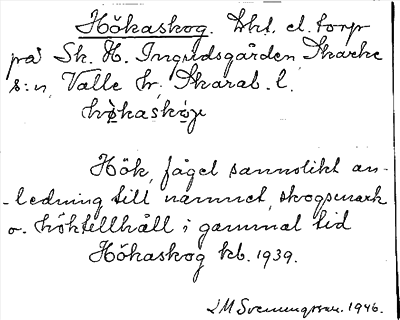 Hökaskog. Lht. el. torp
på St. H. Ingridsgården Skarke
s:n, Valle hr, Skarab. l.
hökaskoje
Hök, fågel sannolikt an-
-ledning till namnet, skogsmark
o. höktillhåll i gammal tid
Hökaskog kb. 1939.
J M Svenungsson. 1946.